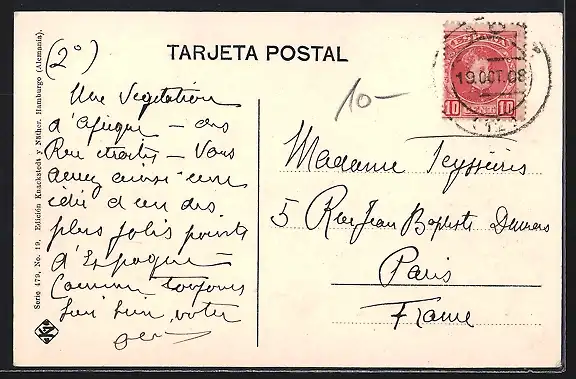 TARJETA POSTAL
Serie 479, No. 19. Edición Knackstedt y Näther, Hamburgo (Alemania).
(2°)
Une végétation
d'Afrique — des
Rues étroites — Vous
avez ainsi une
idée d'un des
plus jolis points
d'Espagne —
Comme toujours
bien votre
10-
19 OCT. 08
10 10
Madame Teyssières
5 Rue Jean Baptiste Dumas
Paris
France